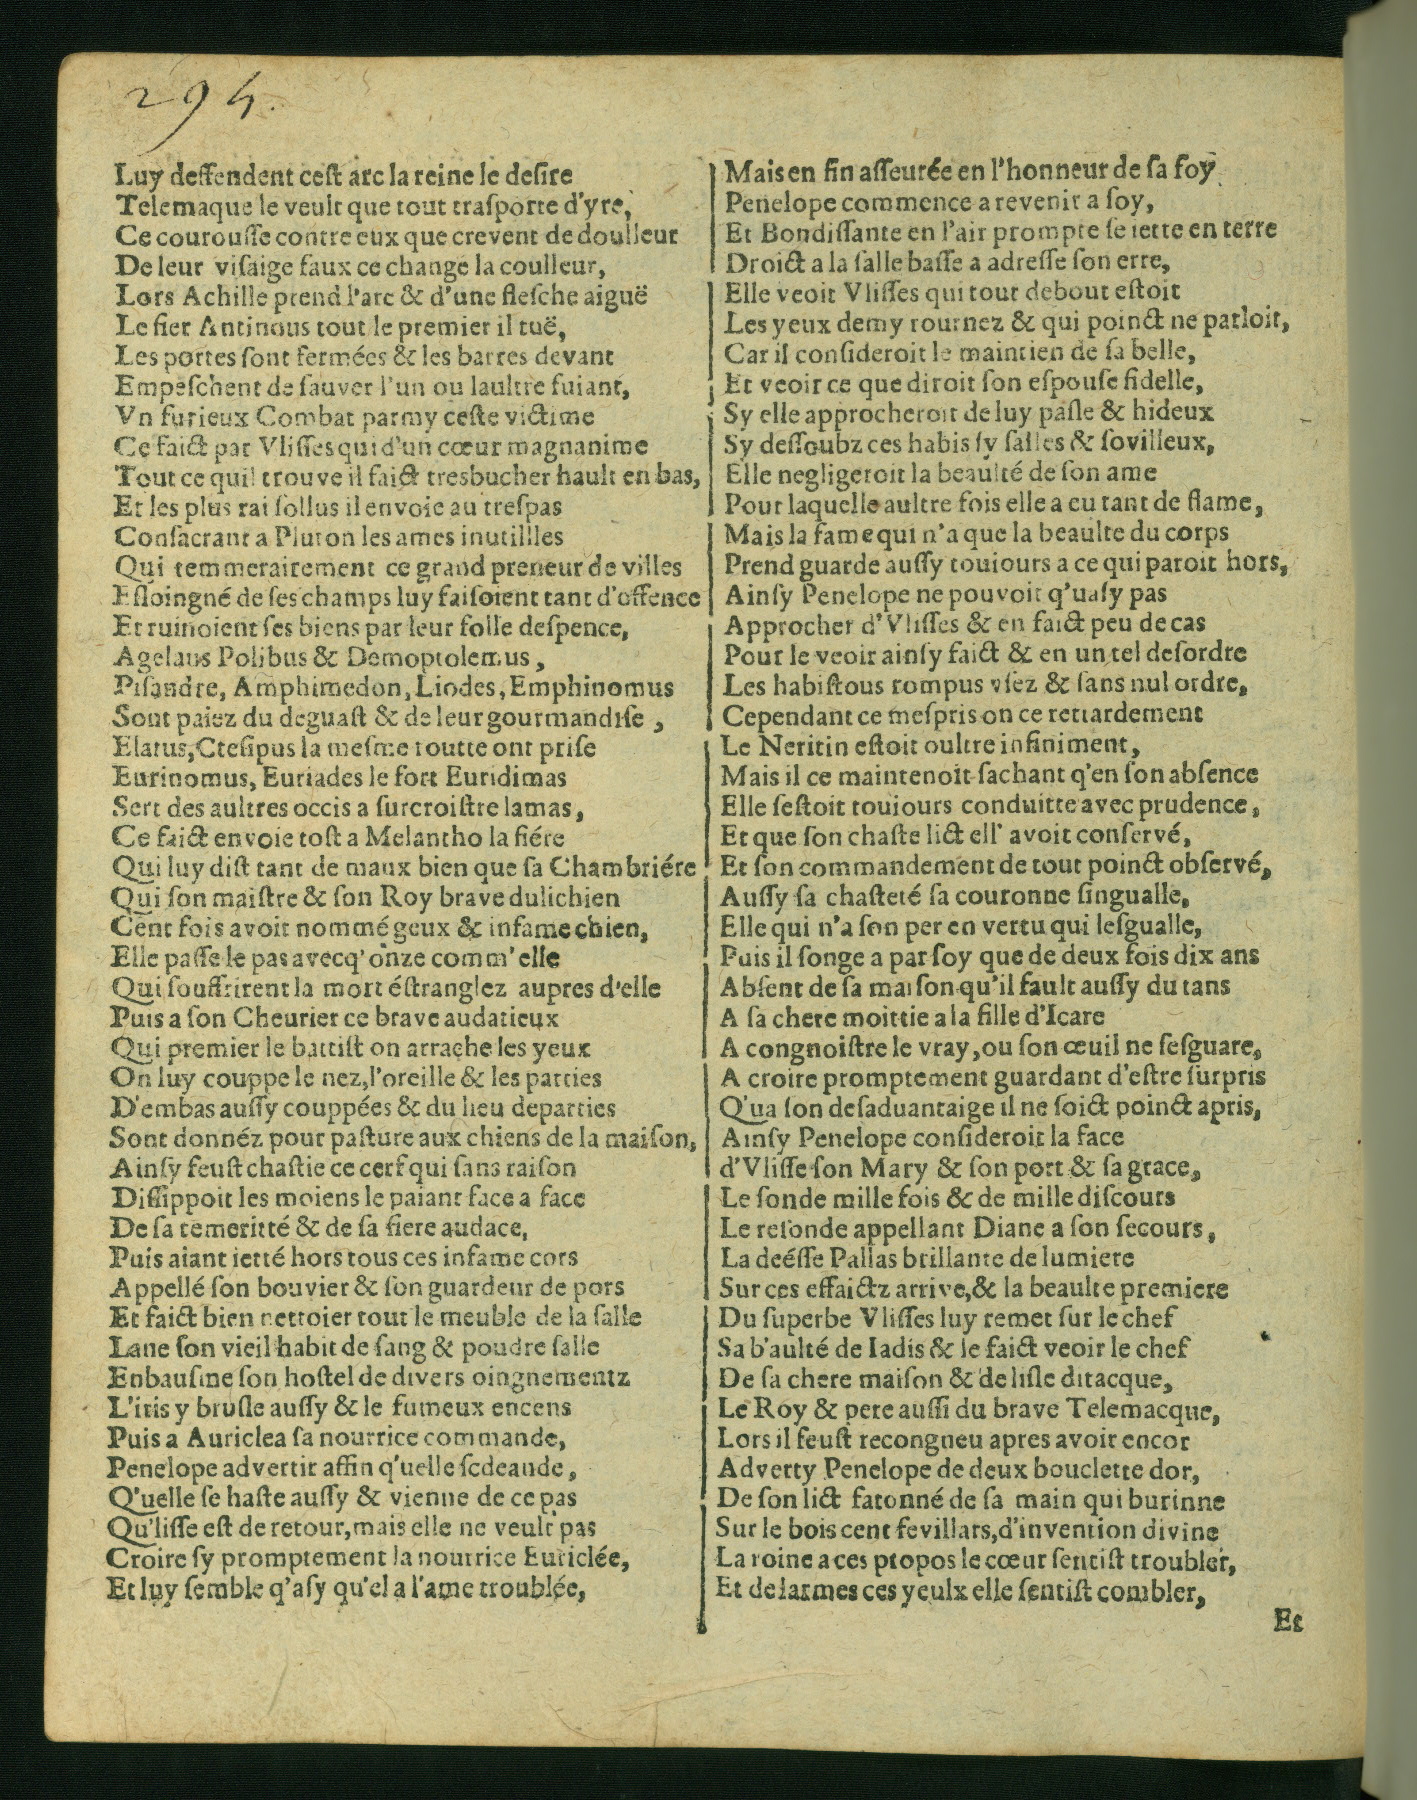 294.
Luy deffendent ceſt arc la reine le deſire
Telemaque le veult que tout traſporte d'yre,
Ce courouſſe contre eux que crevent de doulleur
De leur viſaige faux ce change la coulleur,
Lors Achille prend l'arc & d'une fleſche aiguë
Le fier Antinous tout le premier il tuë,
Les portes ſont fermées & les barres devant
Empeſchent de ſauver l'un ou laultre fuiant,
Vn furieux Combat parmy ceſte victime
Ce faict par Vliſſes qui d'un cœur magnanime
Tout ce quil trouve il faict tresbucher hault en bas,
Et les plus rai ſollus il envoie au treſpas
Conſacrant a Pluton les ames inutillles
Qui temmerairement ce grand preneur de villes
Eſloingné de ſes champs luy faiſoient tant d'offence
Et ruinoient ſes biens par leur folle deſpence,
Agelaus Polibus & Demoptolemus,
Piſandre, Amphimedon, Liodes, Emphinomus
Sont paiez du deguaſt & de leur gourmandiſe,
Elatus, Cteſipus la meſme toutte ont priſe
Eurinomus, Euriades le fort Euridimas
Sert des aultres occis a ſurcroiſtre lamas,
Ce faict envoie toſt a Melantho la fiére
Qui luy diſt tant de maux bien que ſa Chambriére
Qui ſon maiſtre & ſon Roy brave dulichien
Cent fois avoit nommé geux & infame chien,
Elle paſſe le pas avecq' onze comm' elle
Qui ſouffrirent la mort éſtranglez aupres d'elle
Puis a ſon Cheurier ce brave audatieux
Qui premier le battiſt on arrache les yeux
On luy couppe le nez, l'oreille & les parties
D'embas auſſy couppées & du lieu departies
Sont donnéz pour paſture aux chiens de la maiſon,
Ainſy feuſt chaſtie ce cerf qui ſans raiſon
Diſſippoit les moiens le paiant face a face
De ſa temeritté & de ſa fiere audace,
Puis aiant ietté hors tous ces infame cors
Appellé ſon bouvier & ſon guardeur de pors
Et faict bien nettoier tout le meuble de la ſalle
Lane ſon vieil habit de ſang & poudre ſalle
Enbauſme ſon hoſtel de divers oingnementz
L'iris y bruſle auſſy & le fumeux encens
Puis a Auriclea ſa nourrice commande,
Penelope advertir affin q'uelle ſcdeande,
Q'uelle ſe haſte auſſy & vienne de ce pas
Qu'liſſe eſt de retour, mais elle ne veult pas
Croire ſy promptement la nourrice Euriclée,
Et luy ſemble q'aſy qu'el a l'ame troublée,
Mais en fin aſſeurée en l'honneur de ſa foy
Penelope commence a revenir a ſoy,
Et Bondiſſante en l'air prompte ſe iette en terre
Droict a la ſalle baſſe a adreſſe ſon erre,
Elle veoit Vliſſes qui tout debout eſtoit
Les yeux demy tournez & qui poinct ne parloit,
Car il conſideroit le maintien de ſa belle,
Et veoir ce que diroit ſon eſpouſe fidelle,
Sy elle approcheroit de luy paſle & hideux
Sy deſſoubz ces habis ſy ſalles & ſovilleux,
Elle negligeroit la beaulté de ſon ame
Pour laquelle aultre fois elle a eu tant de flame,
Mais la fame qui n'a que la beaulte du corps
Prend guarde auſſy touiours a ce qui paroit hors,
Ainſy Penelope ne pouvoit q'uaſy pas
Approcher d'Vliſſes & en faict peu de cas
Pour le veoir ainſy faict & en un tel deſordre
Les habiſtous rompus vſez & ſans nul ordre,
Cependant ce meſpris on ce rettardement
Le Neritin eſtoit oultre infiniment,
Mais il ce maintenoit ſachant q'en ſon abſence
Elle ſeſtoit touiours conduitte avec prudence,
Et que ſon chaſte lict ell' avoit conſervé,
Et ſon commandement de tout poinct obſervé,
Auſſy ſa chaſteté ſa couronne ſingualle,
Elle qui n'a ſon per en vertu qui leſgualle,
Puis il ſonge a par ſoy que de deux fois dix ans
Abſent de ſa maiſon qu'il fault auſſy du tans
A ſa chere moittie a la fille d'Icare
A congnoiſtre le vray, ou ſon œuil ne ſeſguare,
A croire promptement guardant d'eſtre ſurpris
Q'ua ſon deſaduantaige il ne ſoict poinct apris,
Ainſy Penelope conſideroit la face
d'Vliſſe ſon Mary & ſon port & ſa grace,
Le ſonde mille fois & de mille diſcours
Le reſonde appellant Diane a ſon ſecours,
La deéſſe Pallas brillante de lumiere
Sur ces effaictz arrive, & la beaulte premiere
Du ſuperbe Vliſſes luy remet ſur le chef
Sa b'aulté de Iadis & le faict veoir le chef
De ſa chere maiſon & de liſle ditacque,
Le Roy & pere auſſi du brave Telemacque,
Lors il feuſt recongneu apres avoir encor
Adverty Penelope de deux bouclette dor,
De ſon lict fatonné de ſa main qui burinne
Sur le bois cent fevillars, d'invention divine
La roine a ces propos le cœur ſentiſt troubler,
Et de larmes ces yeulx elle ſentiſt combler,
Et